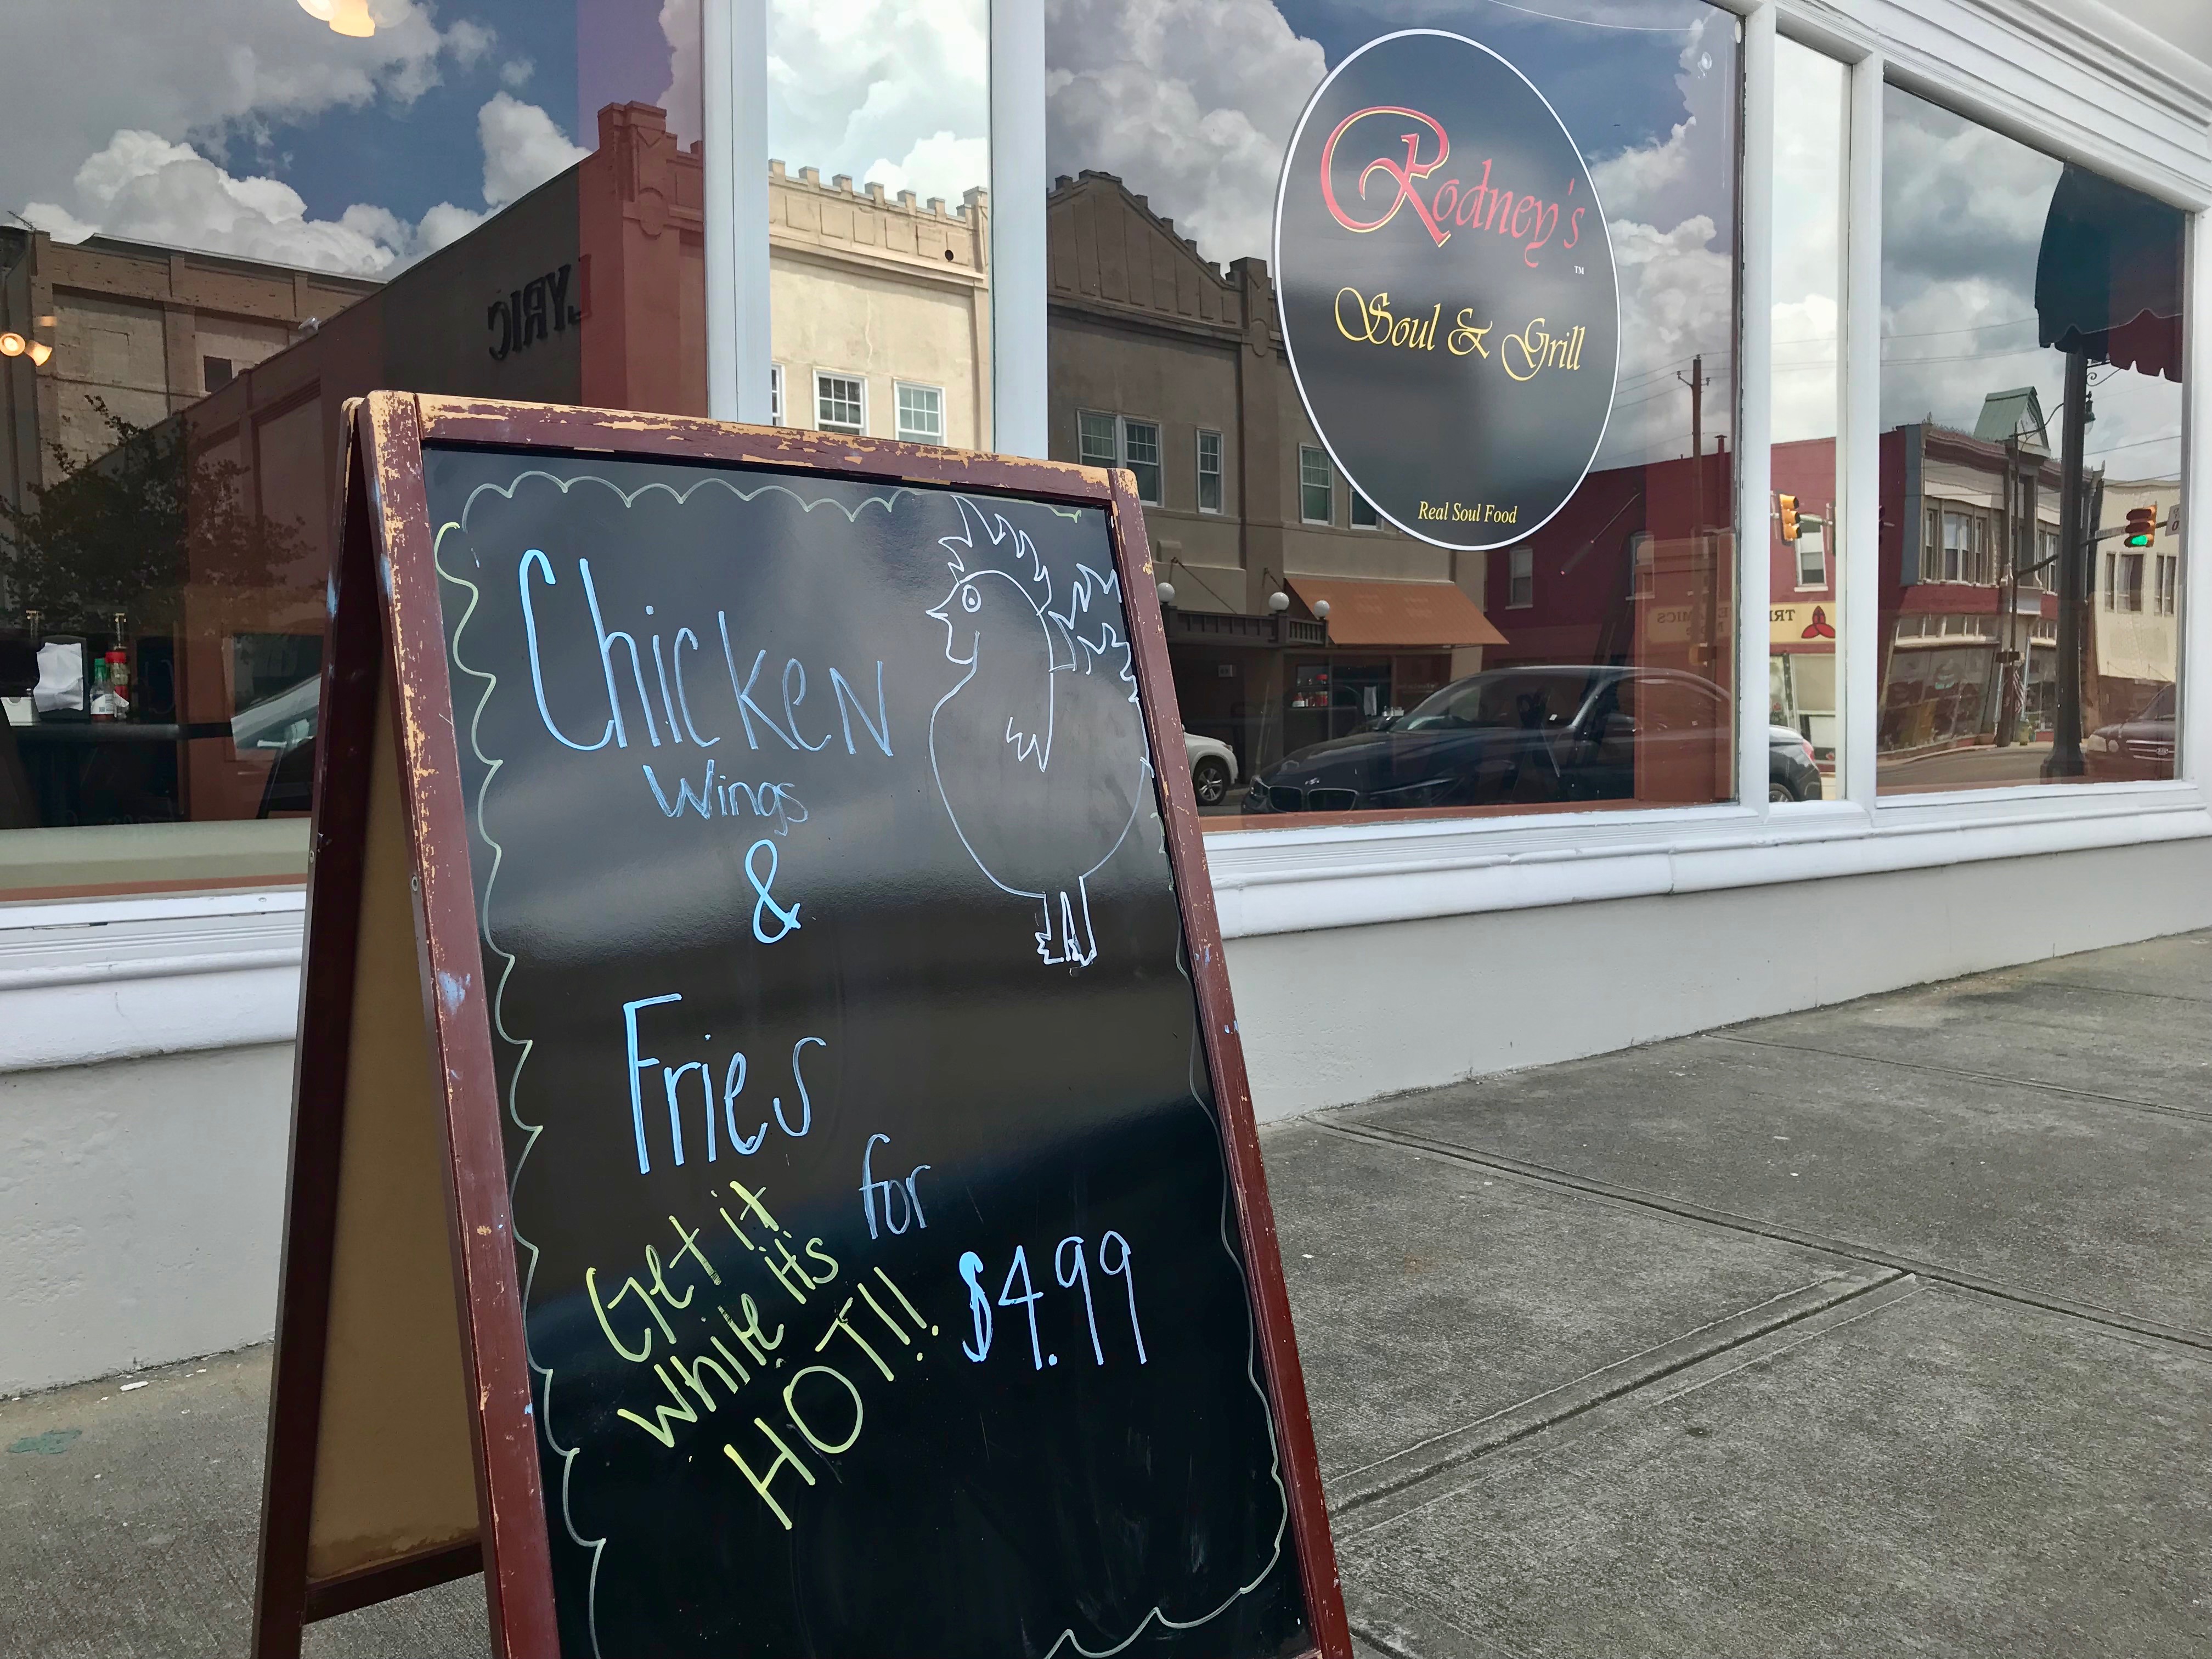 Rodney's
TM
Soul & Grill
Real Soul Food
LYRIC
Chicken
Wings
&
Fries
for
$4.99
Get it
while its
HOT!!